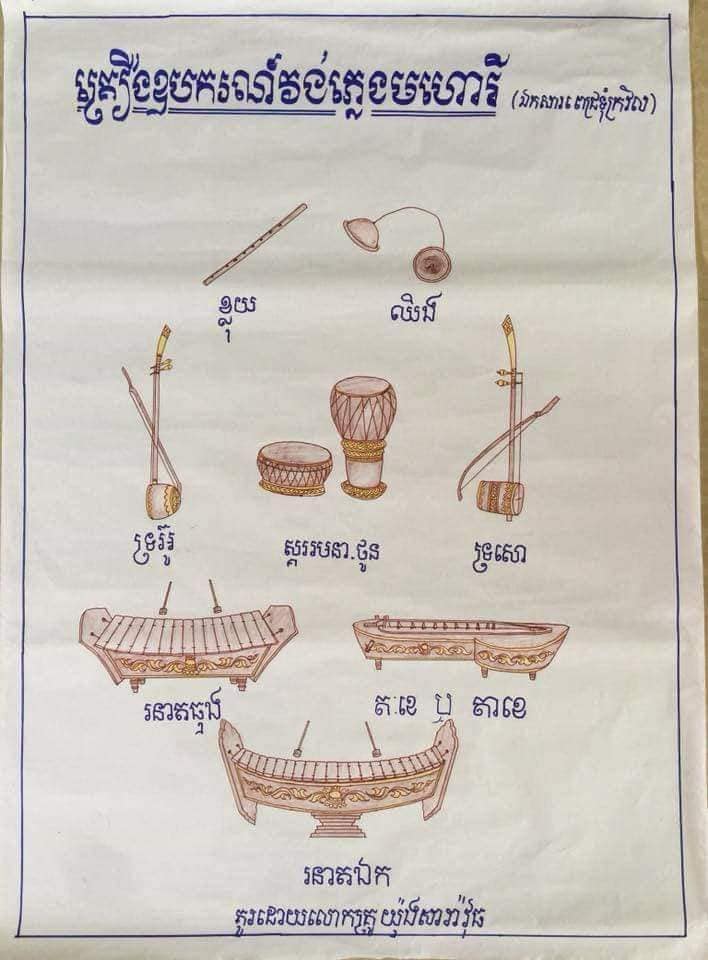 គ្រឿងឧបករណ៍វង់ភ្លេងមហោរី (ឯកសារ ពេជ្រទុំក្រវិល)
ខ្លុយ ឈិង
ទ្រអ៊ូ ស្គររមនា.ថូន ទ្រសោ
រនាតធុង តៈខេ ឬ តាខេ
រនាតឯក
គូរដោយលោកគ្រូ យ៉ុងសារ៉ាវុធ